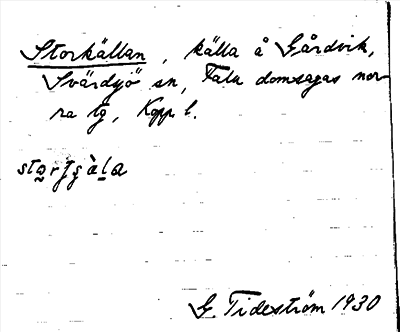 Storkällan, källa å Gårdvik,
Svärdsjö sn, Falu domsagas nor-
ra tg, Kopp l.
G. Tideström 1930